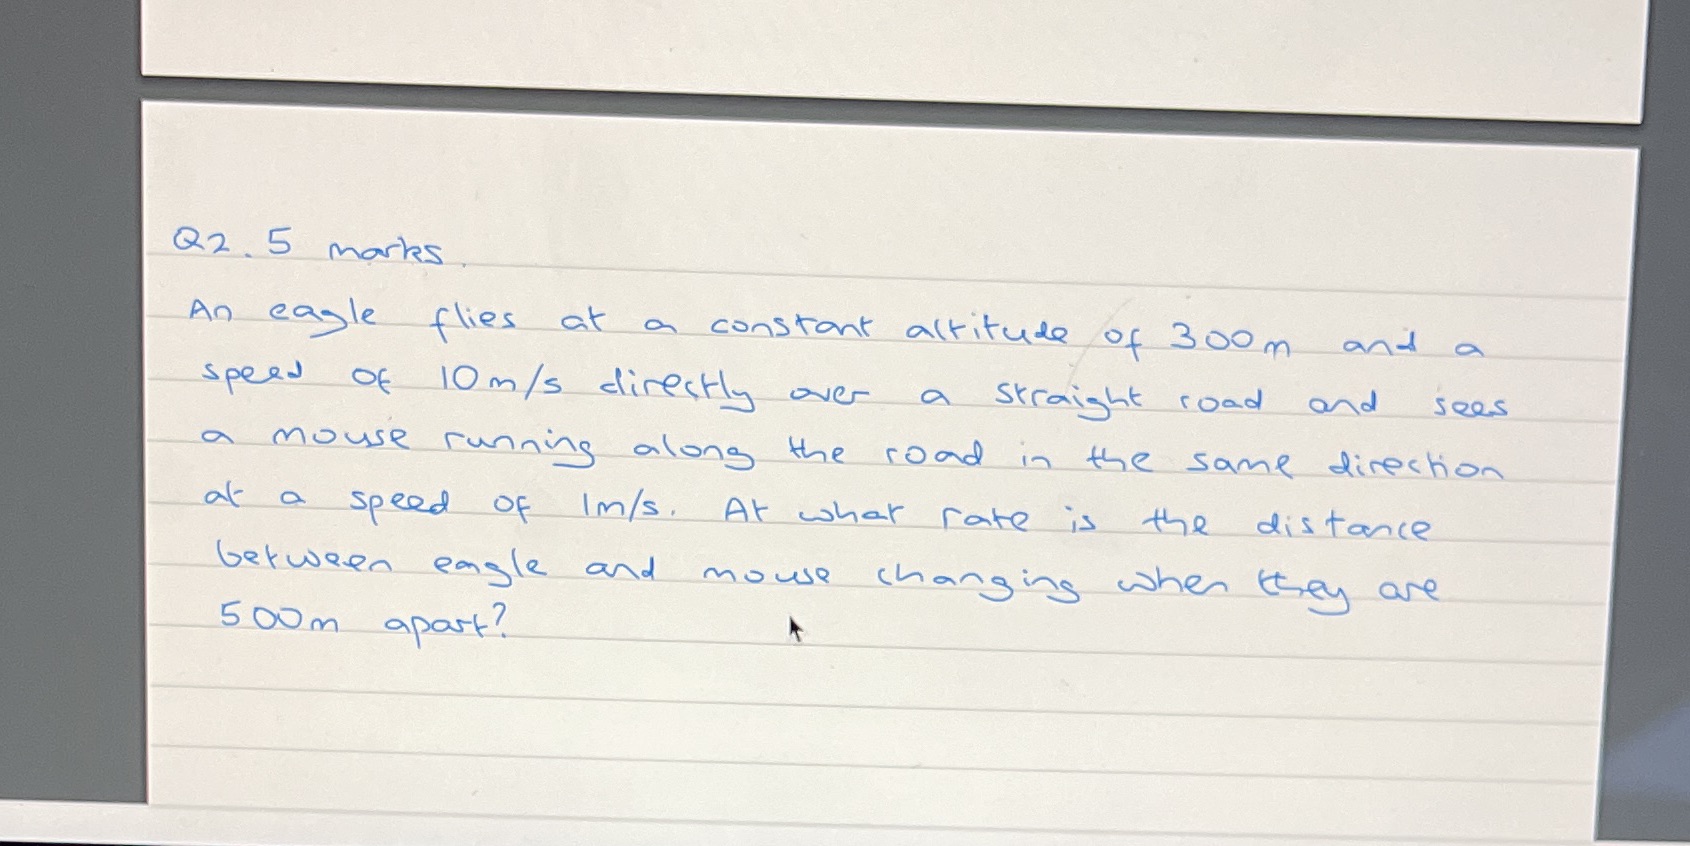 Q2. 5 marks.
An eagle flies at a constant altitude of 300m and a
speed of 10m/s directly over a straight road and sees
a mouse running along the road in the same direction
at a speed of 1m/s. At what rate is the distance
between eagle and mouse changing when they are
500m apart?